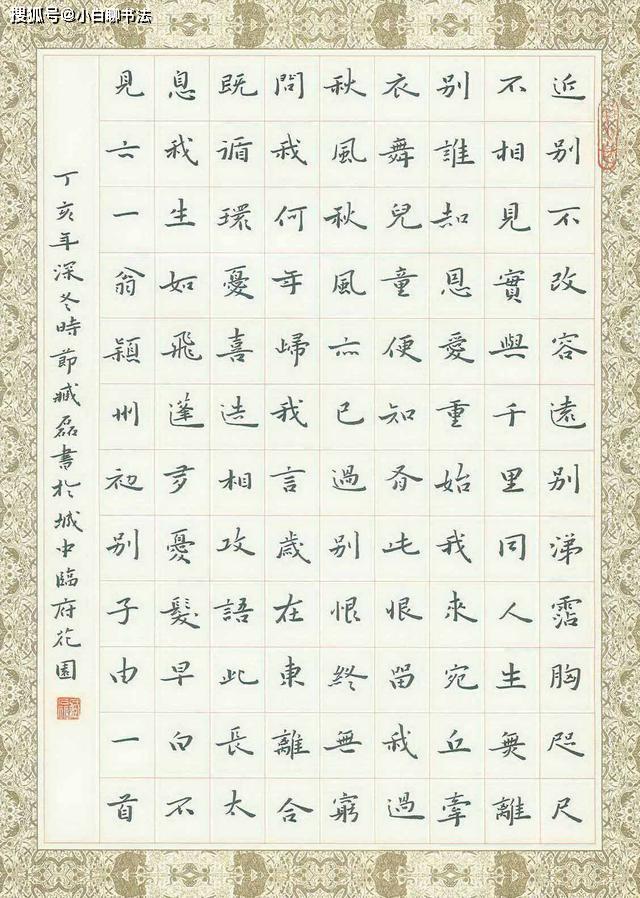 搜狐号@小白聊书法
近別不改容遠別涕霑胸咫尺
不相見實與千里同人生無離
別誰知恩愛重始我來宛丘牽
衣舞兒童便知有此恨留我過
秋風秋風亦已過別恨終無窮
問我何年歸我言歲在東離合
既循環憂喜迭相攻語此長太
息我生如飛蓬多憂髮早白不
見六一翁潁州初別子由一首
丁亥年深冬時節臧磊書於城中臨府花園